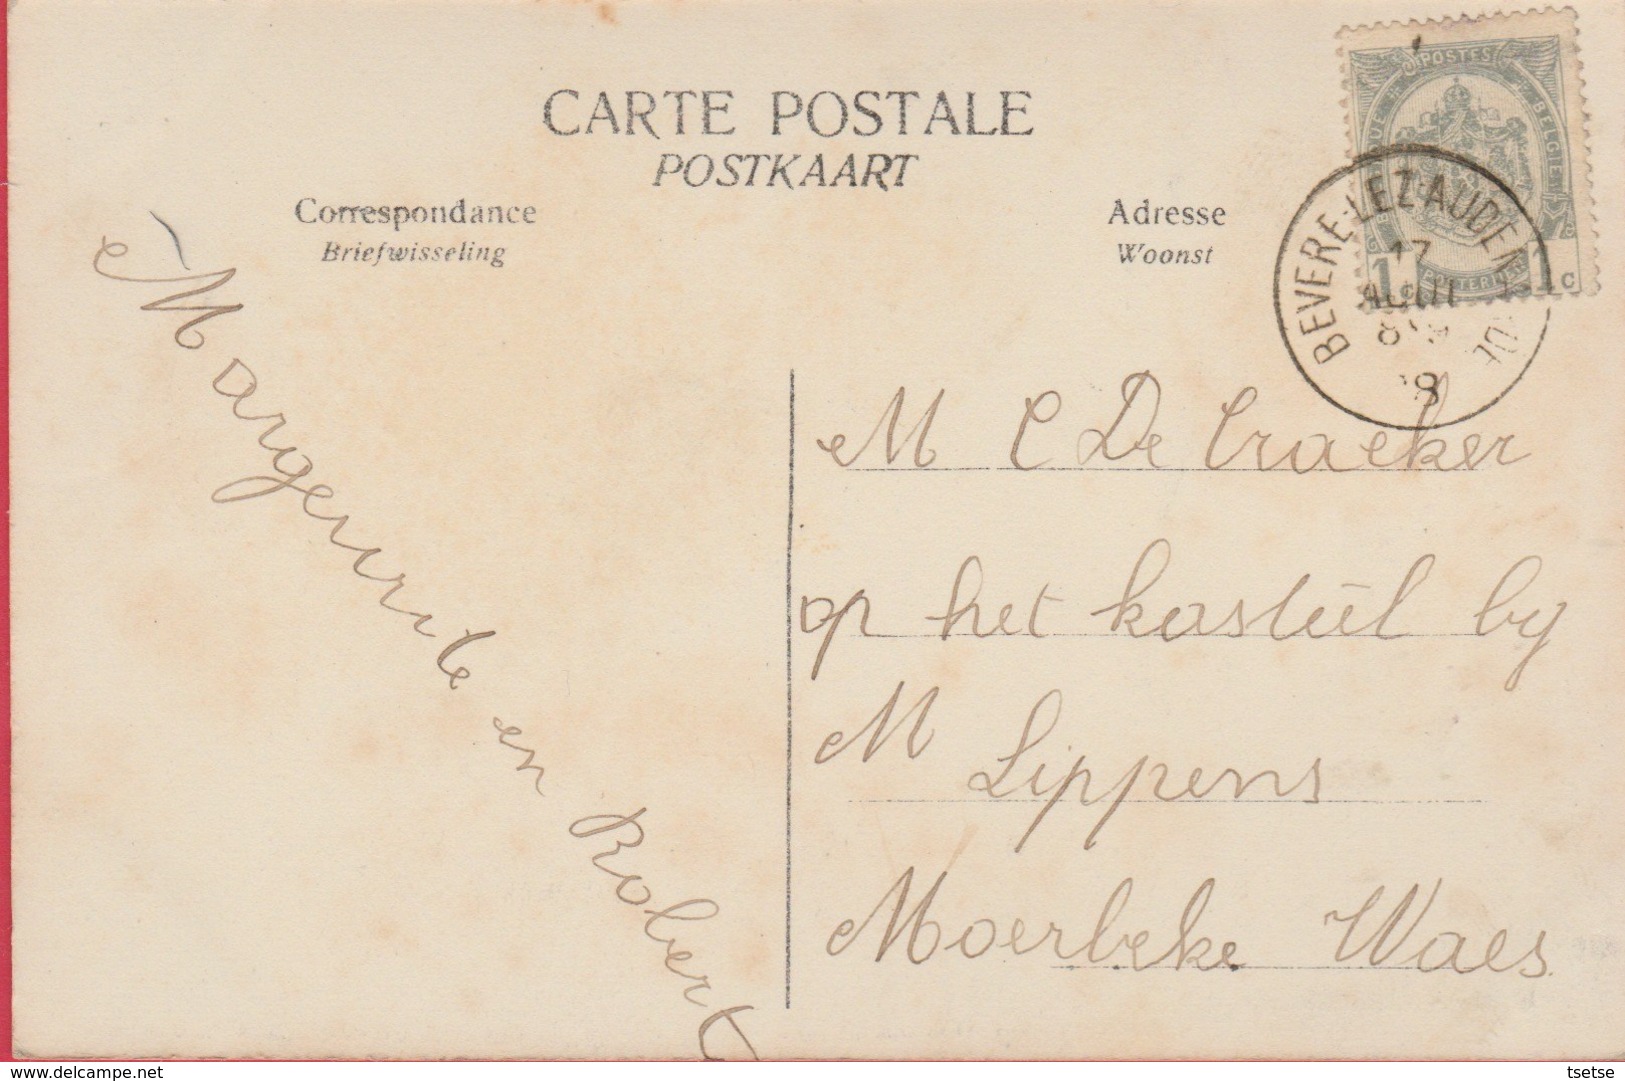 CARTE POSTALE
POSTKAART
Correspondance
Briefwisseling
Adresse
Woonst
POSTES
BELGIE
1 1 c
BEVERE-LEZ-AUDEN
17
8
8
Margeurite en Robert
M C De Craeker
op het kasteel by
M Lippens
Moerbeke Waes
© www.delcampe.net
tsetse